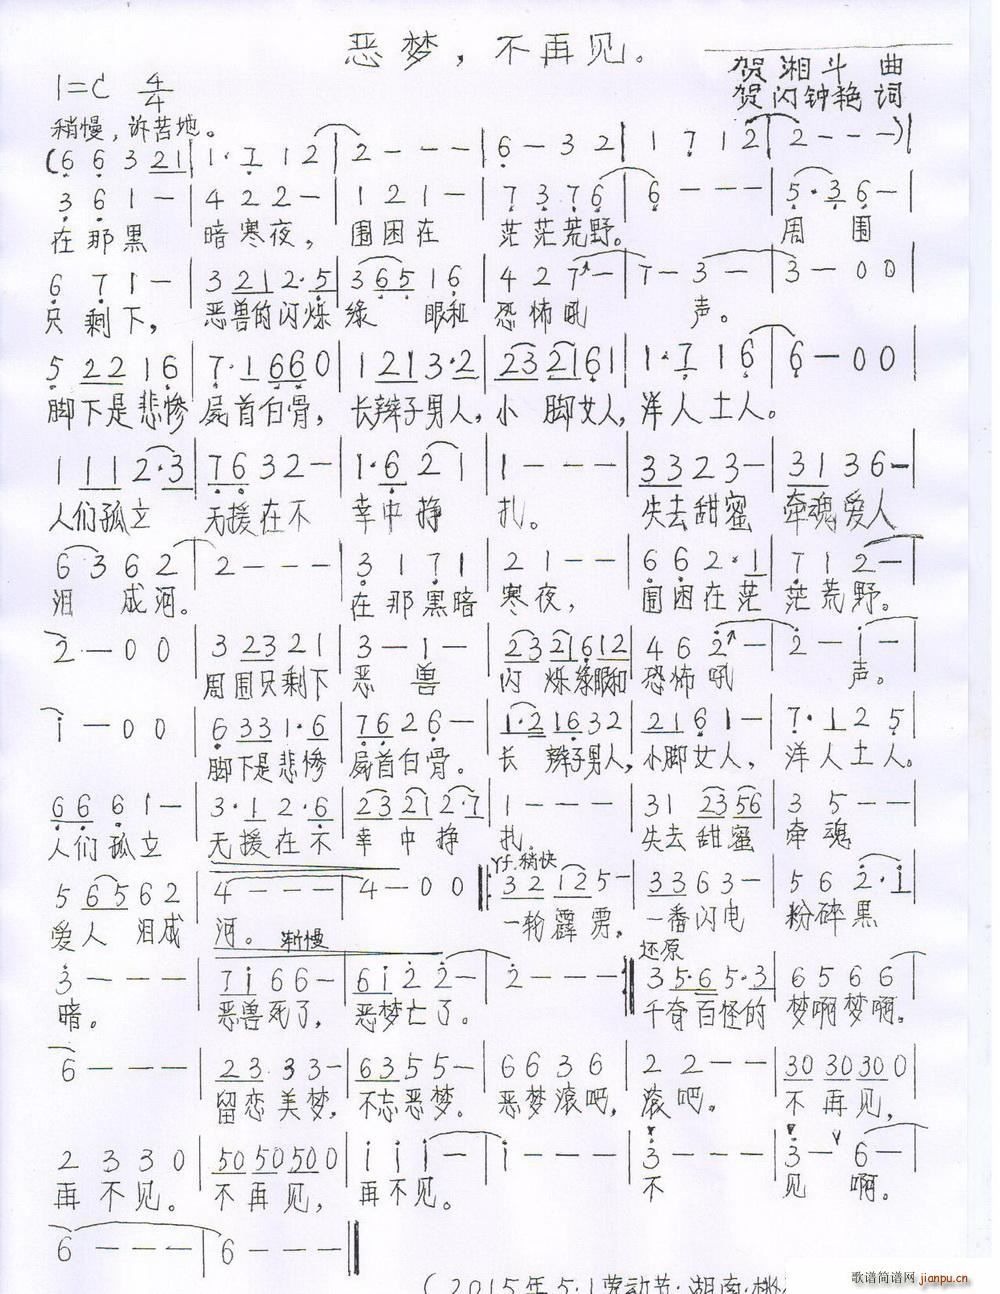 恶梦，不再见。
贺湘斗 曲
1=C 4/4
贺闪钟艳 词
稍慢，诉苦地。
(6 6 3 2 1 | 1· 7 1 2 | 2 - - - | 6 - 3 2 | 1 7 1 2 | 2 - - -)|
3 6 1 - | 4 2 2 - | 1 2 1 - | 7 3 7 6 | 6 - - - | 5·3 6 - |
在那黑 暗寒夜， 围困在 茫茫荒野。 周围
6 7 1 - | 3 2 1 2·5 | 3 6 5 1 6 | 4 2 7 - | 7 - 3 - | 3 - 0 0 |
只剩下， 恶兽的闪烁绿 眼和恐怖吼 声。
5 2 2 1 6 | 7·1 6 6 0 | 1 2 1 3·2 | 2 3 2 1 6 1 | 1·7 1 6 | 6 - 0 0 |
脚下是悲惨 屍首白骨， 长辫子男人，小 脚女人，洋人土人。
1 1 1 2·3 | 7 6 3 2 - | 1·6 2 1 | 1 - - - | 3 3 2 3 - | 3 1 3 6 - |
人们孤立 无援在不 幸中挣 扎。 失去甜蜜 牵魂爱人
6 3 6 2 | 2 - - - | 3 1 7 1 | 2 1 - - | 6 6 2·1 | 7 1 2 - |
泪 成河。 在那黑暗 寒夜， 围困在茫 茫荒野。
2 - 0 0 | 3 2 3 2 1 | 3 - 1 - | 2 3 2 1 6 1 2 | 4 6 2 - | 2 - 1 - |
周围只剩下 恶 兽 闪 烁绿眼和 恐怖吼 声。
1 - 0 0 | 6 3 3 1·6 | 7 6 2 6 - | 1·2 1 6 3 2 | 2 1 6 1 - | 7·1 2 5 |
脚下是悲惨 屍首白骨。 长 辫子男人，小脚女人， 洋人土人。
6 6 6 1 - | 3·1 2·6 | 2 3 2 1 2·7 | 1 - - - | 3 1 2 3 5 6 | 3 5 - - |
人们孤立 无援在不 幸 中 挣 扎。 失去 甜蜜 牵魂
稍快
5 6 5 6 2 | 4 - - - | 4 - 0 0 ‖: 3 2 1 2 5 - | 3 3 6 3 - | 5 6 2·1 |
爱人 泪成 河。 渐慢 一轮霹雳， 一番闪电 粉碎黑
还原
3 - - - | 7 1 6 6 - | 6 1 2 2 - | 2 - - - :‖ 3 5·6 5·3 | 6 5 6 6 |
暗。 恶兽死了， 恶梦亡了。 千奇百怪的 梦啊梦啊。
6 - - - | 2 3 3 3 - | 6 3 5 5 - | 6 6 3 6 | 2 2 - - | 3 0 3 0 3 0 0 |
留恋美梦， 不忘恶梦。 恶梦滚吧， 滚吧。 不再见，
2 3 3 0 | 5 0 5 0 5 0 0 | 1 1 1 - | 1 - - - | 3 - - - | 3 - 6 - |
再不见。 不再见， 再不见。 不 见 啊。
6 - - - | 6 - - - ‖
(2015年5·1劳动节·湖南·桃
歌谱简谱网 jianpu.cn